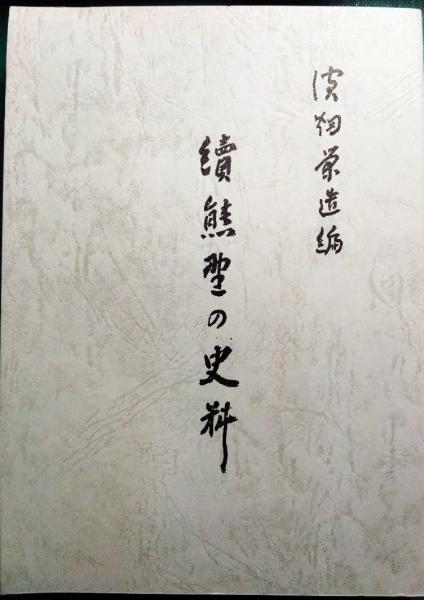 濱畑栄造編
續熊野の史料